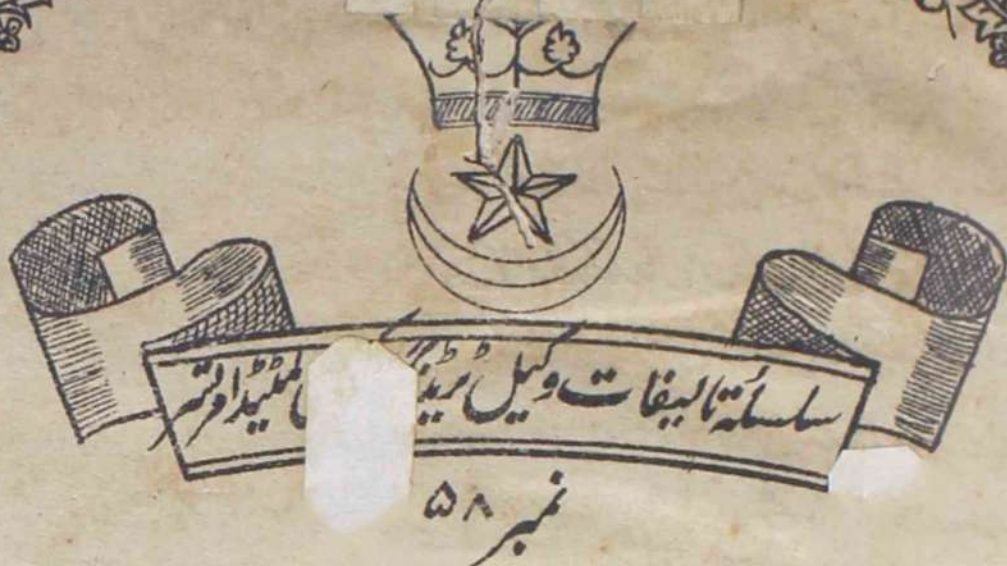 سلسلۂ تالیفات وکیل ٹریڈنگ لمیٹیڈ امرتسر
نمبر ۵۸